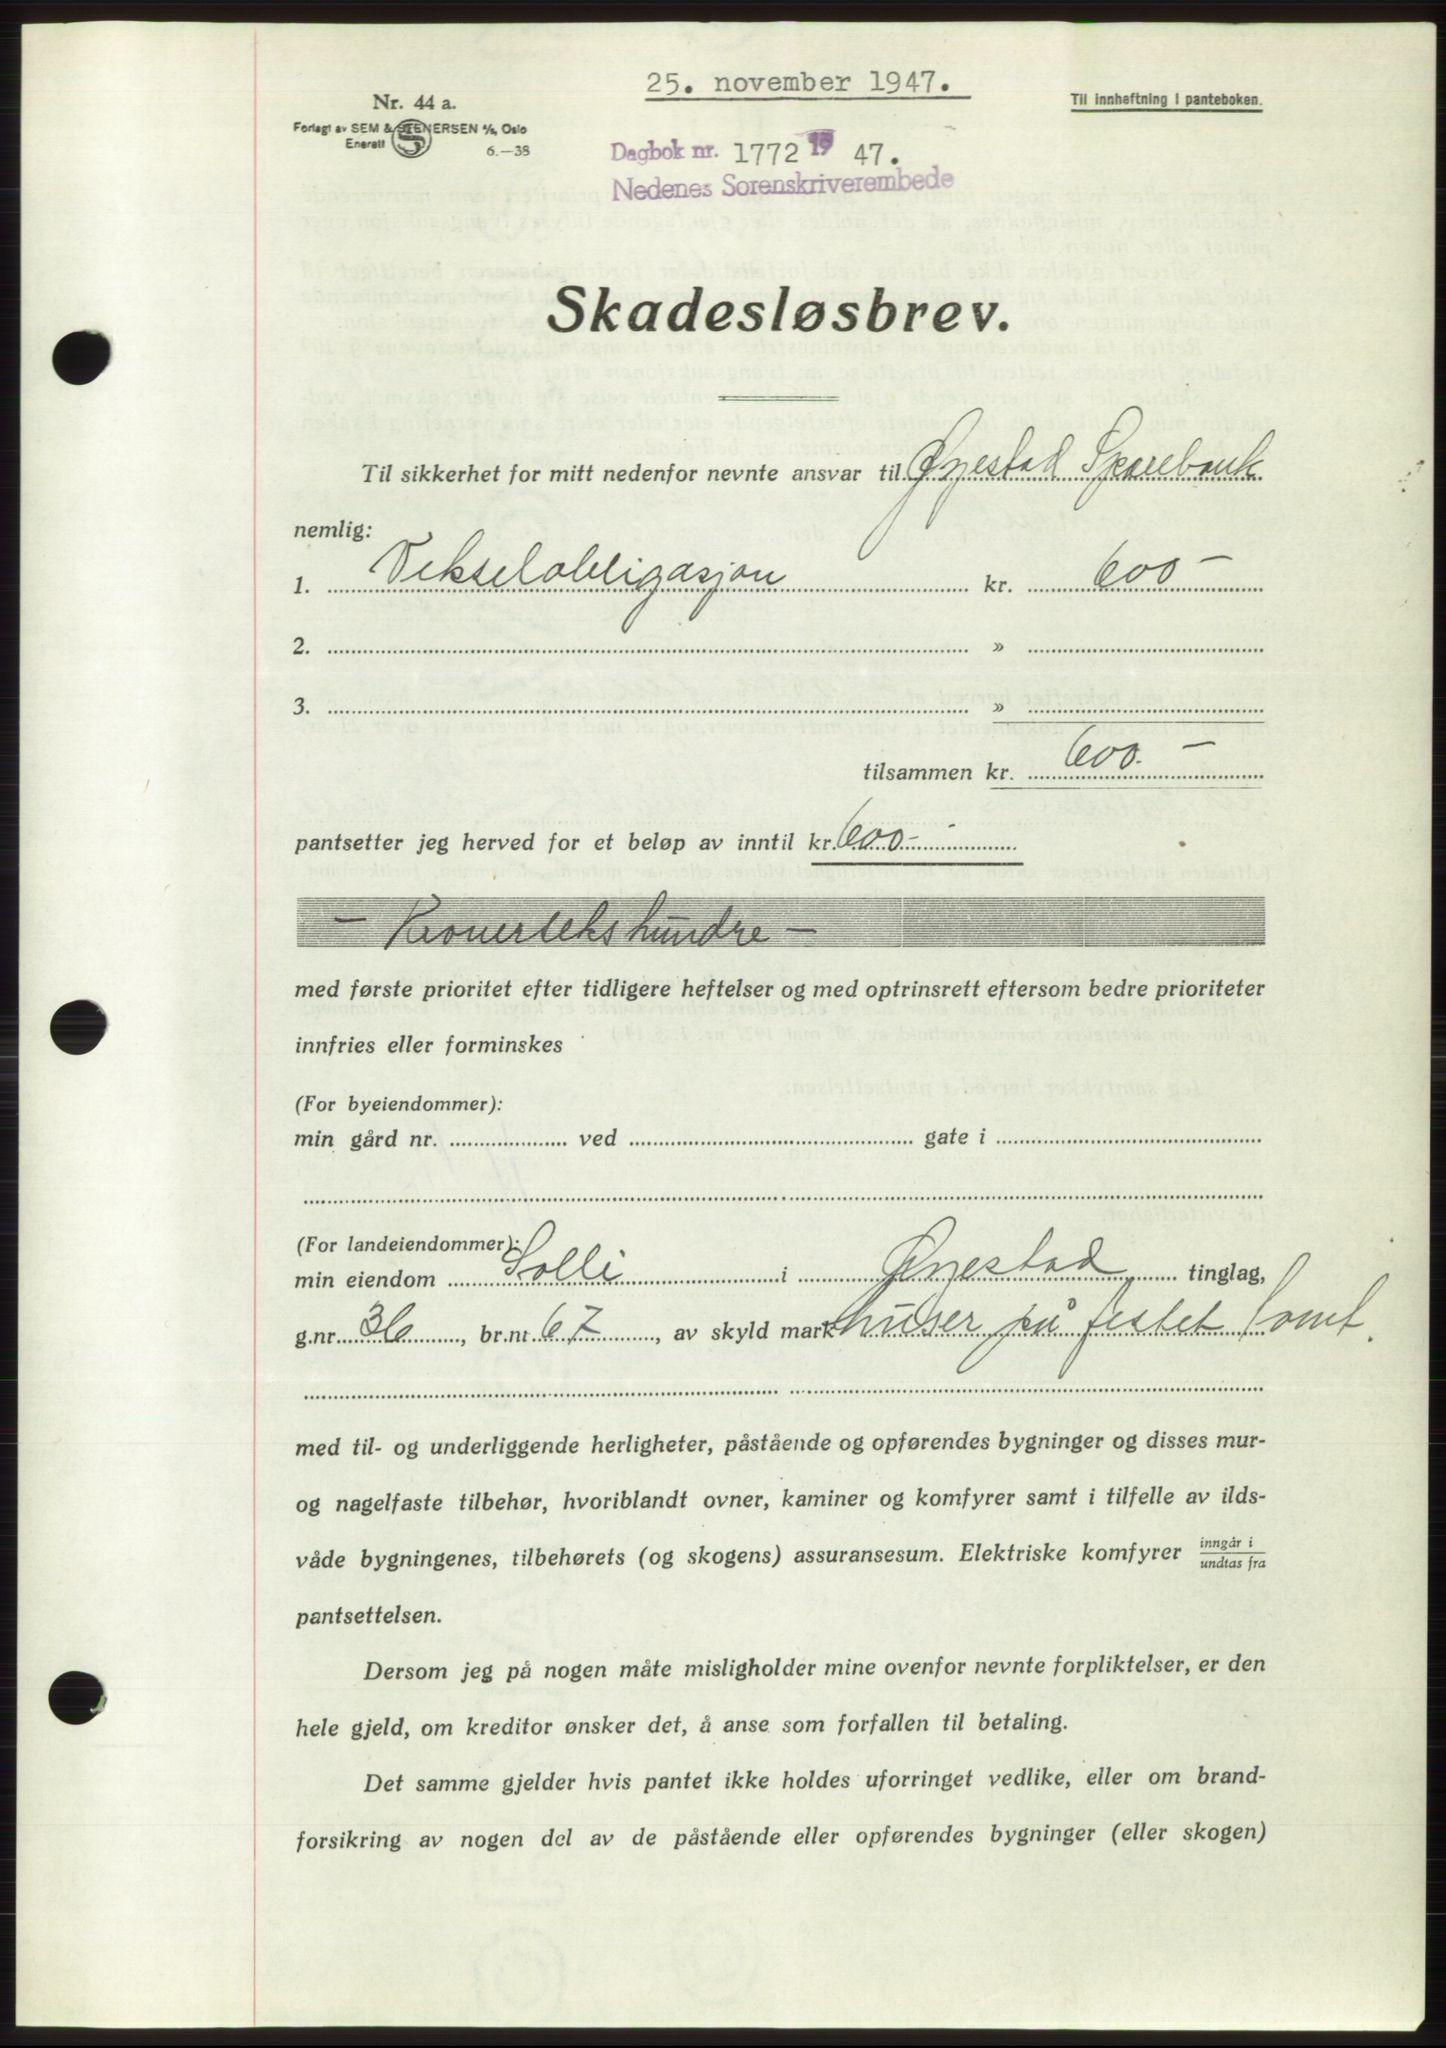 25. november 1947.
Nr. 44 a.
Til innheftning i panteboken.
Forlagt av SEM & STENERSEN A/S, Oslo
Enerett
6.—38
Dagbok nr. 1772 19 47.
Nedenes Sorenskriverembede
Skadesløsbrev.
Til sikkerhet for mitt nedenfor nevnte ansvar til Øyestad Sparebank
nemlig:
1. Vekselobligasjon kr. 600 —
2. »
3. »
tilsammen kr. 600. —
pantsetter jeg herved for et beløp av inntil kr. 600 -
— Kroner seks hundre —
med første prioritet efter tidligere heftelser og med optrinsrett eftersom bedre prioriteter
innfries eller forminskes
(For byeiendommer):
min gård nr. ved gate i
(For landeiendommer):
min eiendom Solli i Øyestad tinglag,
g.nr. 36, br.nr. 67, av skyld mark huser på festet tomt.
med til- og underliggende herligheter, påstående og opførendes bygninger og disses mur-
og nagelfaste tilbehør, hvoriblandt ovner, kaminer og komfyrer samt i tilfelle av ilds-
våde bygningenes, tilbehørets (og skogens) assuransesum. Elektriske komfyrer inngår i / undtas fra
pantsettelsen.
Dersom jeg på nogen måte misligholder mine ovenfor nevnte forpliktelser, er den
hele gjeld, om kreditor ønsker det, å anse som forfallen til betaling.
Det samme gjelder hvis pantet ikke holdes uforringet vedlike, eller om brand-
forsikring av nogen del av de påstående eller opførendes bygninger (eller skogen)